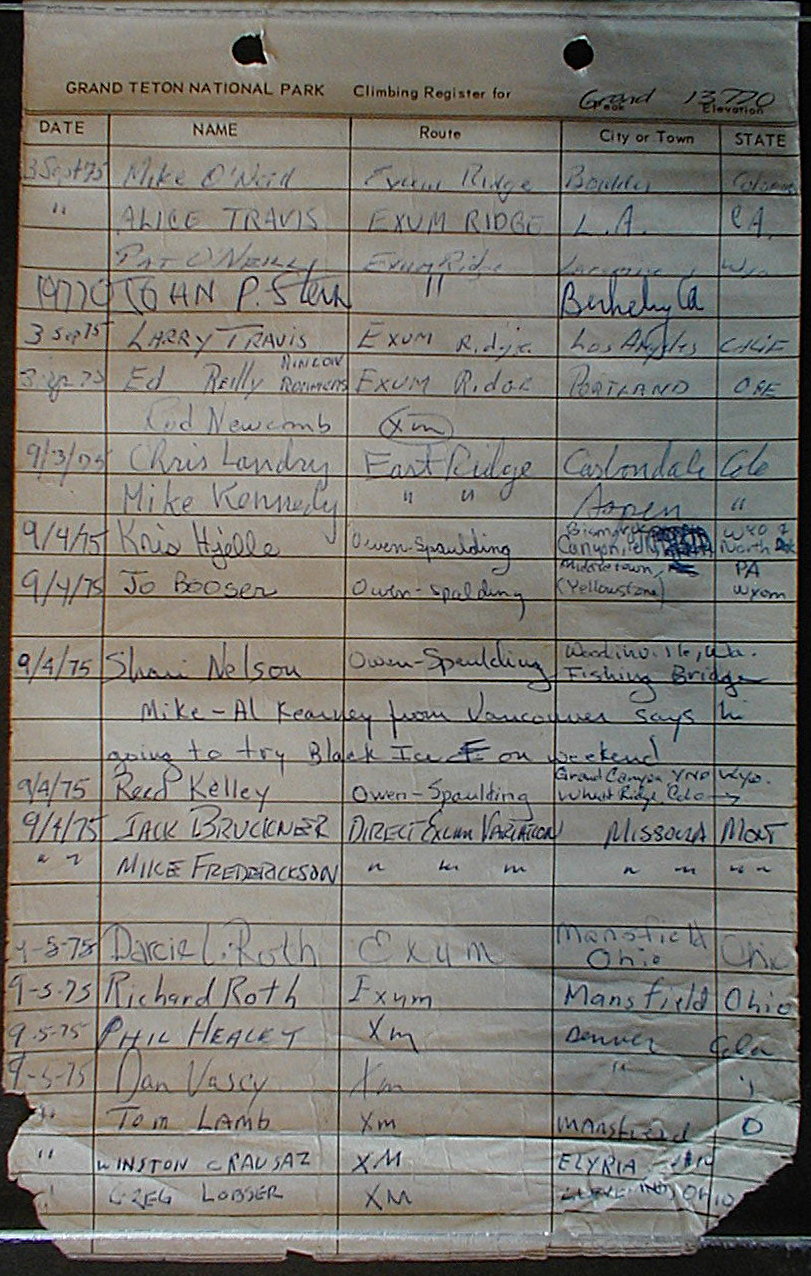 GRAND TETON NATIONAL PARK Climbing Register for Grand 13,770
Peak Elevation
DATE NAME Route City or Town STATE
3 Sept 75 Mike O'Neill Exum Ridge Boulder Colorado
" ALICE TRAVIS EXUM RIDGE L.A. CA.
PAT O'NEILL Exum Ridge Wyo
1977 JOHN P. Stern " Berkeley Ca
3 Sep 75 LARRY TRAVIS EXUM Ridge Los Angeles CALIF
3 Sep 75 Ed Reilly EXUM Ridge PORTLAND ORE
Rod Newcomb Xm
9/3/75 Chris Landry East Ridge Carbondale Colo
Mike Kennedy " " Aspen "
9/4/75 Kris Hjelle Owen-Spaulding Bismarck Wyo &
Canyon North Dak
9/4/75 Jo Booser Owen-Spalding Middletown, PA
(Yellowstone) Wyom
9/4/75 Shari Nelson Owen-Spaulding Woodinville, Wa.
Fishing Bridge
Mike - Al Kearney from Vancouver says hi
going to try Black Ice on weekend
9/4/75 Reed Kelley Owen-Spaulding Grand Canyon YNP Wyo.
Wheat Ridge, Colo →
9/4/75 JACK BRUCKNER DIRECT Exum VARIATION MISSOULA MONT
" " MIKE FREDERICKSON " " " " " " "
9-5-75 Darcie L. Roth Exum Mansfield
Ohio Ohio
9-5-75 Richard Roth Exum Mansfield Ohio
9-5-75 PHIL HEALEY Xm Denver Colo
9-5-75 Dan Vascy Xm " "
" Tom LAMB Xm Mansfield O
" WINSTON CRAUSAZ XM ELYRIA OHIO
" GREG LOBSER XM OHIO